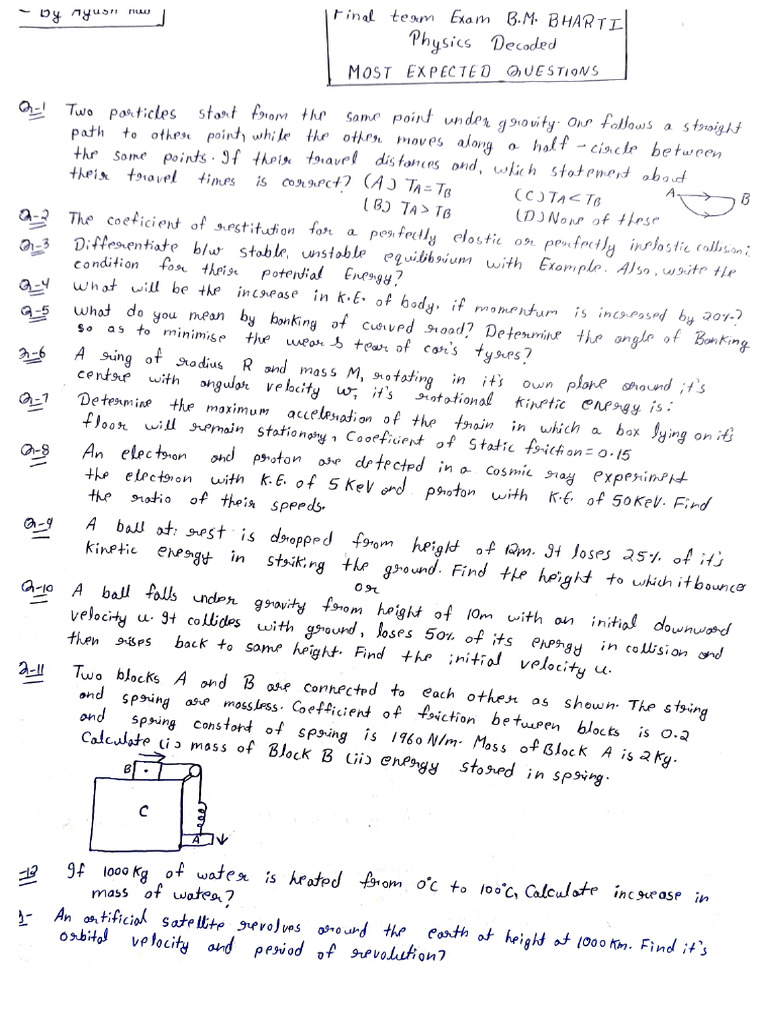 - By Ayush
Final term Exam B.M. BHARTI
Physics Decoded
MOST EXPECTED QUESTIONS
Q-1 Two particles start from the same point under gravity. One follows a straight
path to other point, while the other moves along a half-circle between
the same points. If their travel distances and, which statement about
their travel times is correct? (A) TA = TB (C) TA < TB
(B) TA > TB (D) None of these
A B
Q-2 The coeficient of restitution for a perfectly elastic or perfectly inelastic collision:
Q-3 Differentiate b/w stable, unstable equilibrium with Example. Also, write the
condition for their potential Energy?
Q-4 What will be the increase in K.E. of body, if momentum is increased by 20%?
Q-5 What do you mean by banking of curved road? Determine the angle of Banking
so as to minimise the wear & tear of car's tyres?
Q-6 A ring of radius R and mass M, rotating in it's own plane around it's
centre with angular velocity w, it's rotational kinetic energy is:
Q-7 Determine the maximum acceleration of the train in which a box lying on it's
floor will remain stationary, Cooeficient of Static friction = 0.15
Q-8 An electron and proton are detected in a cosmic ray experiment
the electron with K.E. of 5 KeV and proton with K.E. of 50KeV. Find
the ratio of their speeds.
Q-9 A ball at rest is dropped from height of 12m. It loses 25% of it's
kinetic energy in striking the ground. Find the height to which it bounce
or
Q-10 A ball falls under gravity from height of 10m with an initial downward
velocity u. It collides with ground, loses 50% of its energy in collision and
then rises back to same height. Find the initial velocity u.
Q-11 Two blocks A and B are connected to each other as shown. The string
and spring are massless. Coefficient of friction between blocks is 0.2
and spring constant of spring is 1960 N/m. Mass of Block A is 2 Kg.
Calculate (i) mass of Block B (ii) energy stored in spring.
B
C
A
-12 If 1000 Kg of water is heated from 0°C to 100°C, Calculate increase in
mass of water?
An artificial satellite revolves around the earth at height at 1000 Km. Find it's
orbital velocity and period of revolution?